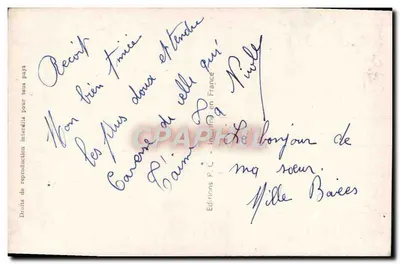 Reçoit
Mon bien aimée
les plus doux et tendre
Caresse de celle qui
t'aime Ta Nicole
Le bonjour de
ma sœur.
Mille Baisés
Droits de reproduction interdits pour tous pays
Editions P. C. - en France
CPArama.com